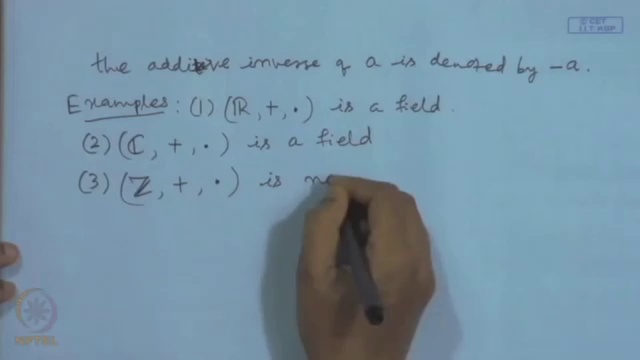 © CET
I.I.T. KGP
the additive inverse of a is denoted by -a.
Examples: (1) (ℝ, +, ·) is a field.
(2) (ℂ, +, ·) is a field
(3) (ℤ, +, ·) is
NPTEL